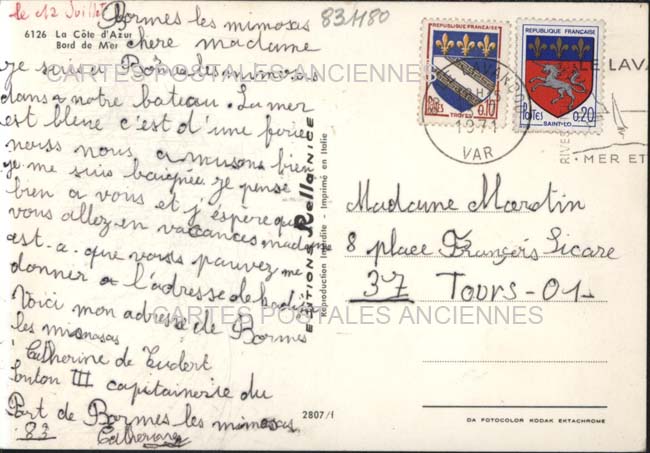 le 12 Juillet
831180
6126 La Côte d'Azur
Bord de Mer
Bormes les mimosas
chere madame
je suis a Bormes les mimosas
dans notre bateau. La mer
est bleue c'est d'une
nous nous amusons bien
je me suis baignée je pense
bien a vous et j'éspère que
vous allez en vaccances madame
est-a-que vous pouvez me
donner a l'adresse de
Voici mon adresse de Bormes
les mimosas
Catherine de Tudert
III capitainerie du
Port de Bormes les mimosas
83
Catherine
EDITIONS Rella NICE
Reproduction Interdite - Imprimé en Italie
2807/f
REPUBLIQUE FRANÇAISE
POSTES
0,10
TROYES
REPUBLIQUE FRANÇAISE
POSTES
0,20
SAINT-LO
LE LAVANDOU
1971
VAR
LE LAVA
MER ET
Madame Martin
8 place François Sicare
37 Tours-01-
DA FOTOCOLOR KODAK EKTACHROME
CARTES POSTALES ANCIENNES
CARTES POSTALES ANCIENNES